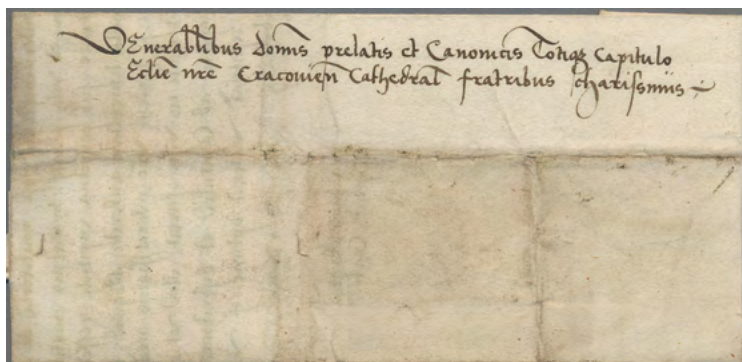 Venerabilibus domnis prelatis et Canonicis Totiqz Capitulo
Eclie nre Cracovien Cathedral fratribus charissimis